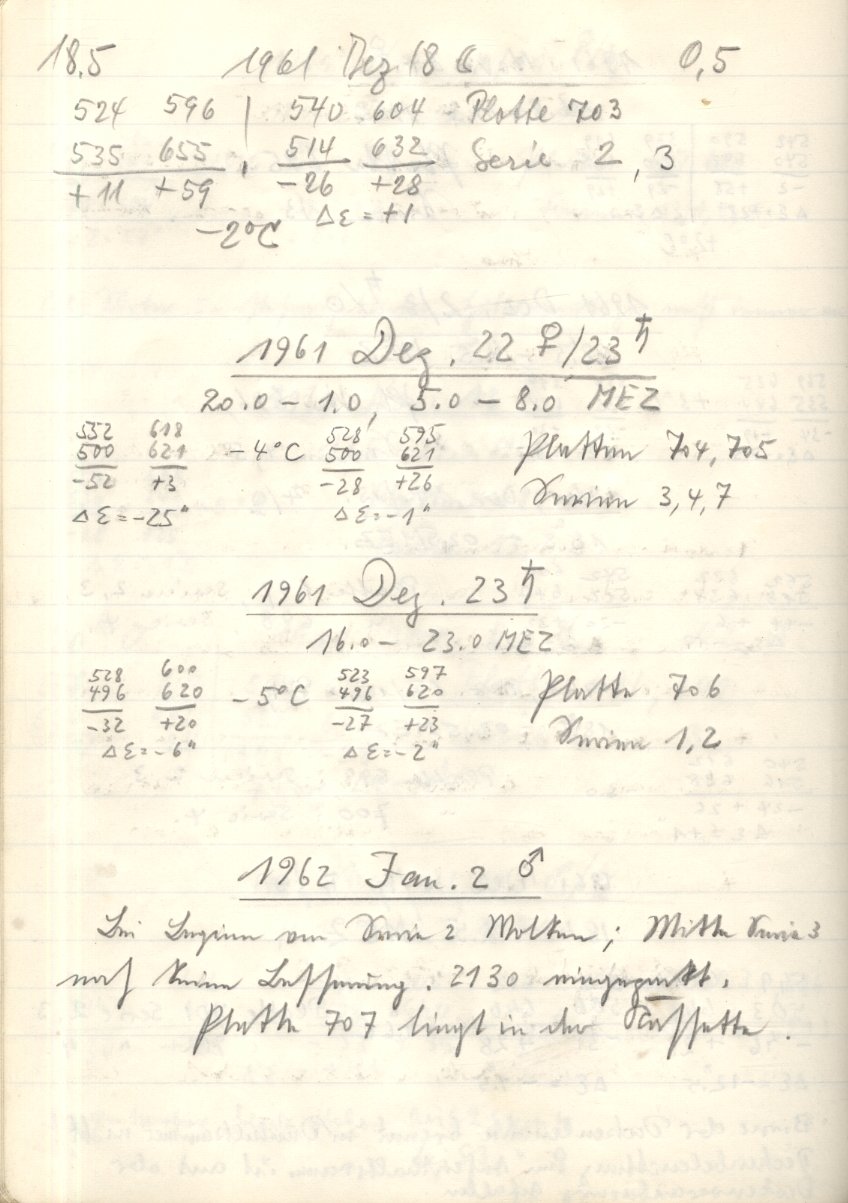 18,5 1961 Dez 18 ☾ 0,5
524 596 | 540 604 - Platte 703
535 655 | 514 632 Serie 2, 3
+11 +59 -26 +28
-2°C Δε = +1
1961 Dez. 22 ♀/23 ♄
20.0 - 1.0, 5.0 - 8.0 MEZ
552 618 528 595
500 621 -4°C 500 621 Platten 704, 705
-52 +3 -28 +26 Serien 3, 4, 7
Δε = -25" Δε = -1"
1961 Dez. 23 ♄
16.0 - 23.0 MEZ
528 600 523 597
496 620 -5°C 496 620 Platte 706
-32 +20 -27 +23 Serien 1, 2
Δε = -6" Δε = -2"
1962 Jan. 2 ♂
Bei Beginn von Serie 2 Wolken; Mitte Serie 3
noch keine Besserung. 2130 eingepackt.
Platte 707 liegt in der Kassette.